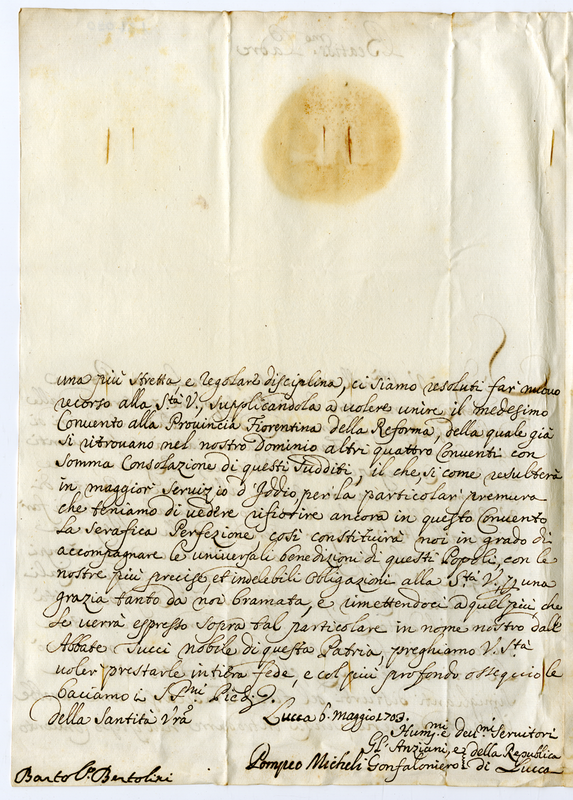 una più stretta, e regolare disciplina, ci siamo resoluti far nuovo
ricorso alla Stà V., supplicandola a volere unire il medesimo
Convento alla Provincia Fiorentina della Reforma, della quale già
si ritrovano nel nostro Dominio altri quattro Conventi con
somma Consolazione di questi sudditi, il che si come resulterà
in maggior servizio d'Iddio, per la particolar premura
che teniamo di vedere rifiorire ancora in questo Convento
la serafica Perfezione, così constituirà noi in grado di
accompagnare le universali benedizioni di questi Popoli, con le
nostre più precise et indelebili obligazioni alla Stà V. una
grazia tanto da noi bramata, e rimettendoci a quel più che
le verrà espresso sopra tal particolare in nome nostro dall'
Abbate Tucci nobile di questa Patria, preghiamo V. Stà
voler prestarle intiera fede, e col più profondo ossequio le
baciamo i S.mi Piedi.
della Santità Vra Lucca 6. Maggio 1703.
Hum.mi e deu.mi Servitori
Gl'Anziani, e
Gonfaloniero della Republica di Lucca
Pompeo Micheli
Barto.o Bertolini